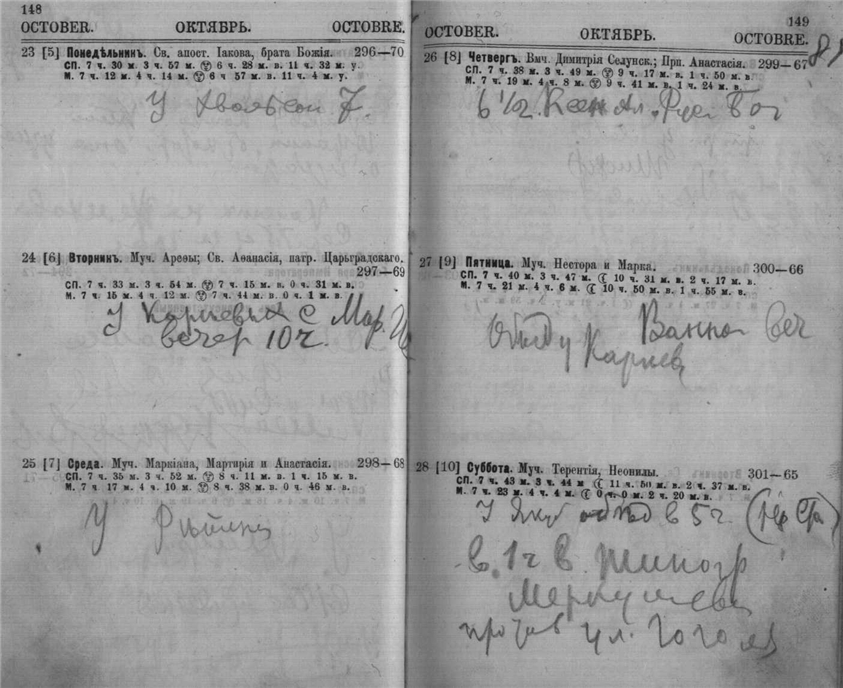 148
OCTOBER. ОКТЯБРЬ. OCTOBRE.
23 [5] Понедѣльникъ. Св. апост. Іакова, брата Божія. 296—70
СП. 7 ч. 30 м. 3 ч. 57 м. 6 ч. 28 м. в. 11 ч. 32 м. у.
М. 7 ч. 12 м. 4 ч. 14 м. 6 ч. 57 м. в. 11 ч. 4 м. у.
У
24 [6] Вторникъ. Муч. Ареѳы; Св. Аѳанасія, патр. Царьградскаго.
297—69
СП. 7 ч. 33 м. 3 ч. 54 м. 7 ч. 15 м. в. 0 ч. 31 м. в.
М. 7 ч. 15 м. 4 ч. 12 м. 7 ч. 44 м. в. 0 ч. 1 м. в.
У Кариевых с Мар.
вечер 10 ч.
25 [7] Среда. Муч. Маркіана, Мартирія и Анастасія. 298—68
СП. 7 ч. 35 м. 3 ч. 52 м. 8 ч. 11 м. в. 1 ч. 15 м. в.
М. 7 ч. 17 м. 4 ч. 10 м. 8 ч. 38 м. в. 0 ч. 46 м. в.
У
149
OCTOBER. ОКТЯБРЬ. OCTOBRE.
26 [8] Четвергъ. Вмч. Димитрія Селунск.; Прп. Анастасія. 299—67
СП. 7 ч. 38 м. 3 ч. 49 м. 9 ч. 17 м. в. 1 ч. 50 м. в.
М. 7 ч. 19 м. 4 ч. 8 м. 9 ч. 41 м. в. 1 ч. 24 м. в.
6 1/2
27 [9] Пятница. Муч. Нестора и Марка. 300—66
СП. 7 ч. 40 м. 3 ч. 47 м. 10 ч. 31 м. в. 2 ч. 17 м. в.
М. 7 ч. 21 м. 4 ч. 6 м. 10 ч. 50 м. в. 1 ч. 55 м. в.
Ванна веч
Обед у
Кариев
28 [10] Суббота. Муч. Терентія, Неонилы. 301—65
СП. 7 ч. 43 м. 3 ч. 44 м 11 ч. 50 м. в. 2 ч. 37 м. в.
М. 7 ч. 23 м. 4 ч. 4 м. 0 ч. 0 м. 2 ч. 20 м. в.
У обед в 5 ч.
в 1 ч в
против ул. Гоголя